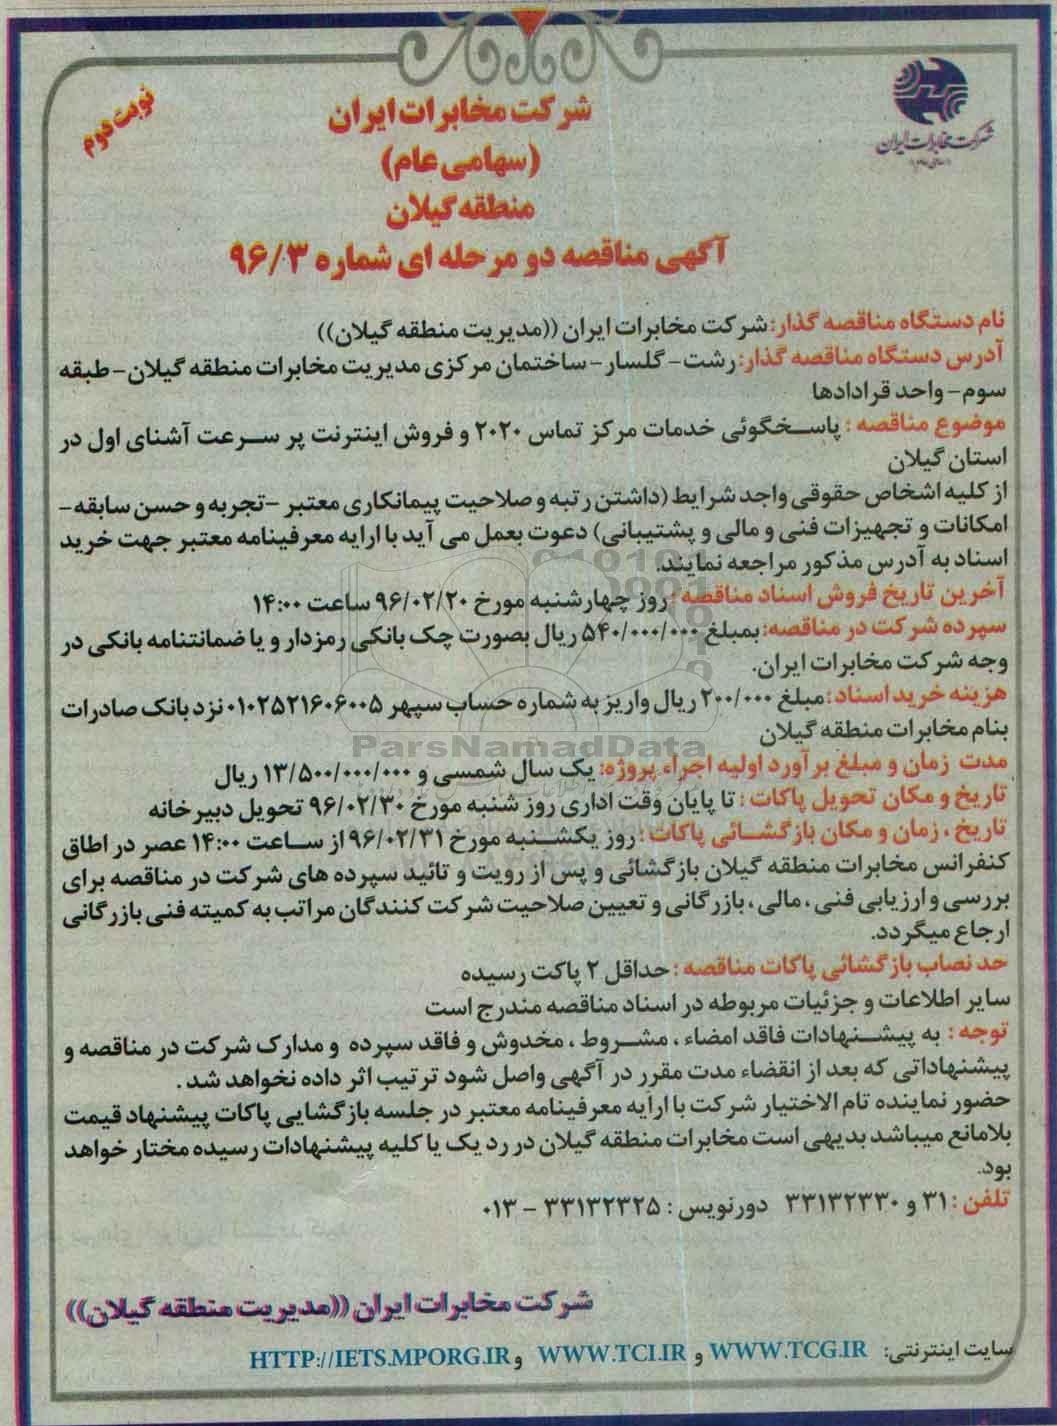 شرکت مخابرات ایران
نوبت دوم
شرکت مخابرات ایران
(سهامی عام)
منطقه گیلان
آگهی مناقصه دو مرحله ای شماره ۹۶/۳
نام دستگاه مناقصه گذار: شرکت مخابرات ایران ((مدیریت منطقه گیلان))
آدرس دستگاه مناقصه گذار: رشت- گلسار- ساختمان مرکزی مدیریت مخابرات منطقه گیلان- طبقه
سوم- واحد قرادادها
موضوع مناقصه : پاسخگوئی خدمات مرکز تماس ۲۰۲۰ و فروش اینترنت پر سرعت آشنای اول در
استان گیلان
از کلیه اشخاص حقوقی واجد شرایط (داشتن رتبه و صلاحیت پیمانکاری معتبر -تجربه و حسن سابقه-
امکانات و تجهیزات فنی و مالی و پشتیبانی) دعوت بعمل می آید با ارایه معرفینامه معتبر جهت خرید
اسناد به آدرس مذکور مراجعه نمایند.
آخرین تاریخ فروش اسناد مناقصه : روز چهارشنبه مورخ ۹۶/۰۲/۲۰ ساعت ۱۴:۰۰
سپرده شرکت در مناقصه: بمبلغ ۵۴۰/۰۰۰/۰۰۰ ریال بصورت چک بانکی رمزدار و یا ضمانتنامه بانکی در
وجه شرکت مخابرات ایران.
هزینه خرید اسناد: مبلغ ۲۰۰/۰۰۰ ریال واریز به شماره حساب سپهر ۰۱۰۲۵۲۱۶۰۶۰۰۵ نزد بانک صادرات
بنام مخابرات منطقه گیلان
ParsNamadData
مدت زمان و مبلغ برآورد اولیه اجراء پروژه: یک سال شمسی و ۱۳/۵۰۰/۰۰۰/۰۰۰ ریال
تاریخ و مکان تحویل پاکات : تا پایان وقت اداری روز شنبه مورخ ۹۶/۰۲/۳۰ تحویل دبیرخانه
تاریخ ، زمان و مکان بازگشائی پاکات : روز یکشنبه مورخ ۹۶/۰۲/۳۱ از ساعت ۱۴:۰۰ عصر در اطاق
کنفرانس مخابرات منطقه گیلان بازگشائی و پس از رویت و تائید سپرده های شرکت در مناقصه برای
بررسی و ارزیابی فنی ، مالی ، بازرگانی و تعیین صلاحیت شرکت کنندگان مراتب به کمیته فنی بازرگانی
ارجاع میگردد.
حد نصاب بازگشائی پاکات مناقصه : حداقل ۲ پاکت رسیده
سایر اطلاعات و جزئیات مربوطه در اسناد مناقصه مندرج است
توجه : به پیشنهادات فاقد امضاء ، مشروط ، مخدوش و فاقد سپرده و مدارک شرکت در مناقصه و
پیشنهاداتی که بعد از انقضاء مدت مقرر در آگهی واصل شود ترتیب اثر داده نخواهد شد .
حضور نماینده تام الاختیار شرکت با ارایه معرفینامه معتبر در جلسه بازگشایی پاکات پیشنهاد قیمت
بلامانع میباشد بدیهی است مخابرات منطقه گیلان در رد یک یا کلیه پیشنهادات رسیده مختار خواهد
بود.
تلفن : ۳۱ و ۳۳۱۳۲۳۳۰ دورنویس : ۳۳۱۳۲۳۲۵ - ۰۱۳
شرکت مخابرات ایران ((مدیریت منطقه گیلان))
سایت اینترنتی: WWW.TCG.IR و WWW.TCI.IR و HTTP://IETS.MPORG.IR